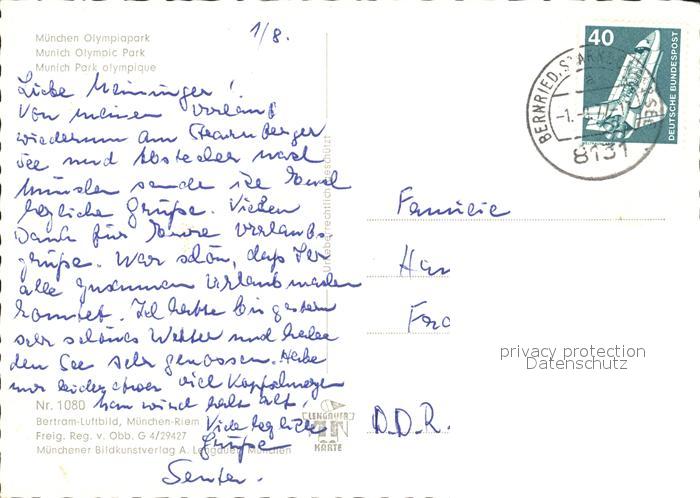 München Olympiapark
Munich Olympic Park
Munich Park olympique
1/8.
Liebe Meininger!
Von meinem Urlaub
wiederum am Starnberger
See und Abstecher nach
München sende ich Euch
herzliche Grüße. Vielen
Dank für Eure Urlaubs-
grüße. War schön, daß Ihr
alle zusammen Urlaub machen
konntet. Ich hatte bis gestern
sehr schönes Wetter und habe
den See sehr genossen. Habe
nur leider etwas viel Kopfschmerzen
Man wird halt alt.
Viele herzliche
Grüße
Nr. 1080
Bertram-Luftbild, München-Riem
Freig. Reg. v. Obb. G 4/29427
Münchener Bildkunstverlag A. Lengauer München
LENGAUER
KARTE
Urheberrechtlich geschützt
40
DEUTSCHE BUNDESPOST
BERNRIED, STARNBERGER SEE
8131
Familie
D.D.R.
privacy protection
Datenschutz